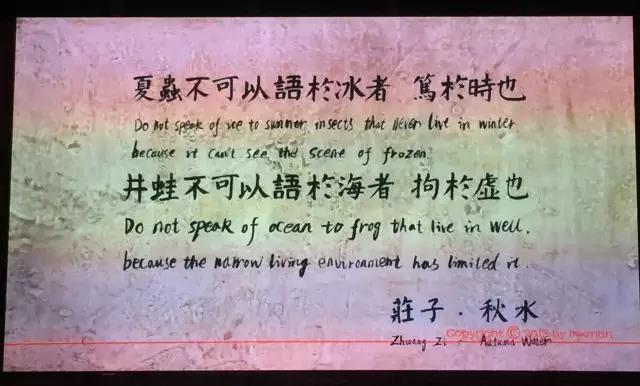 夏蟲不可以語於冰者 篤於時也
Do not speak of ice to summer insects that never live in winter.
because it can't see the scene of frozen.
井蛙不可以語於海者 拘於虛也
Do not speak of ocean to frog that live in well.
because the narrow living environment has limited it.
莊子·秋水
Copyright © 2013 by Inkman
Zhuang Zi Autumn Water